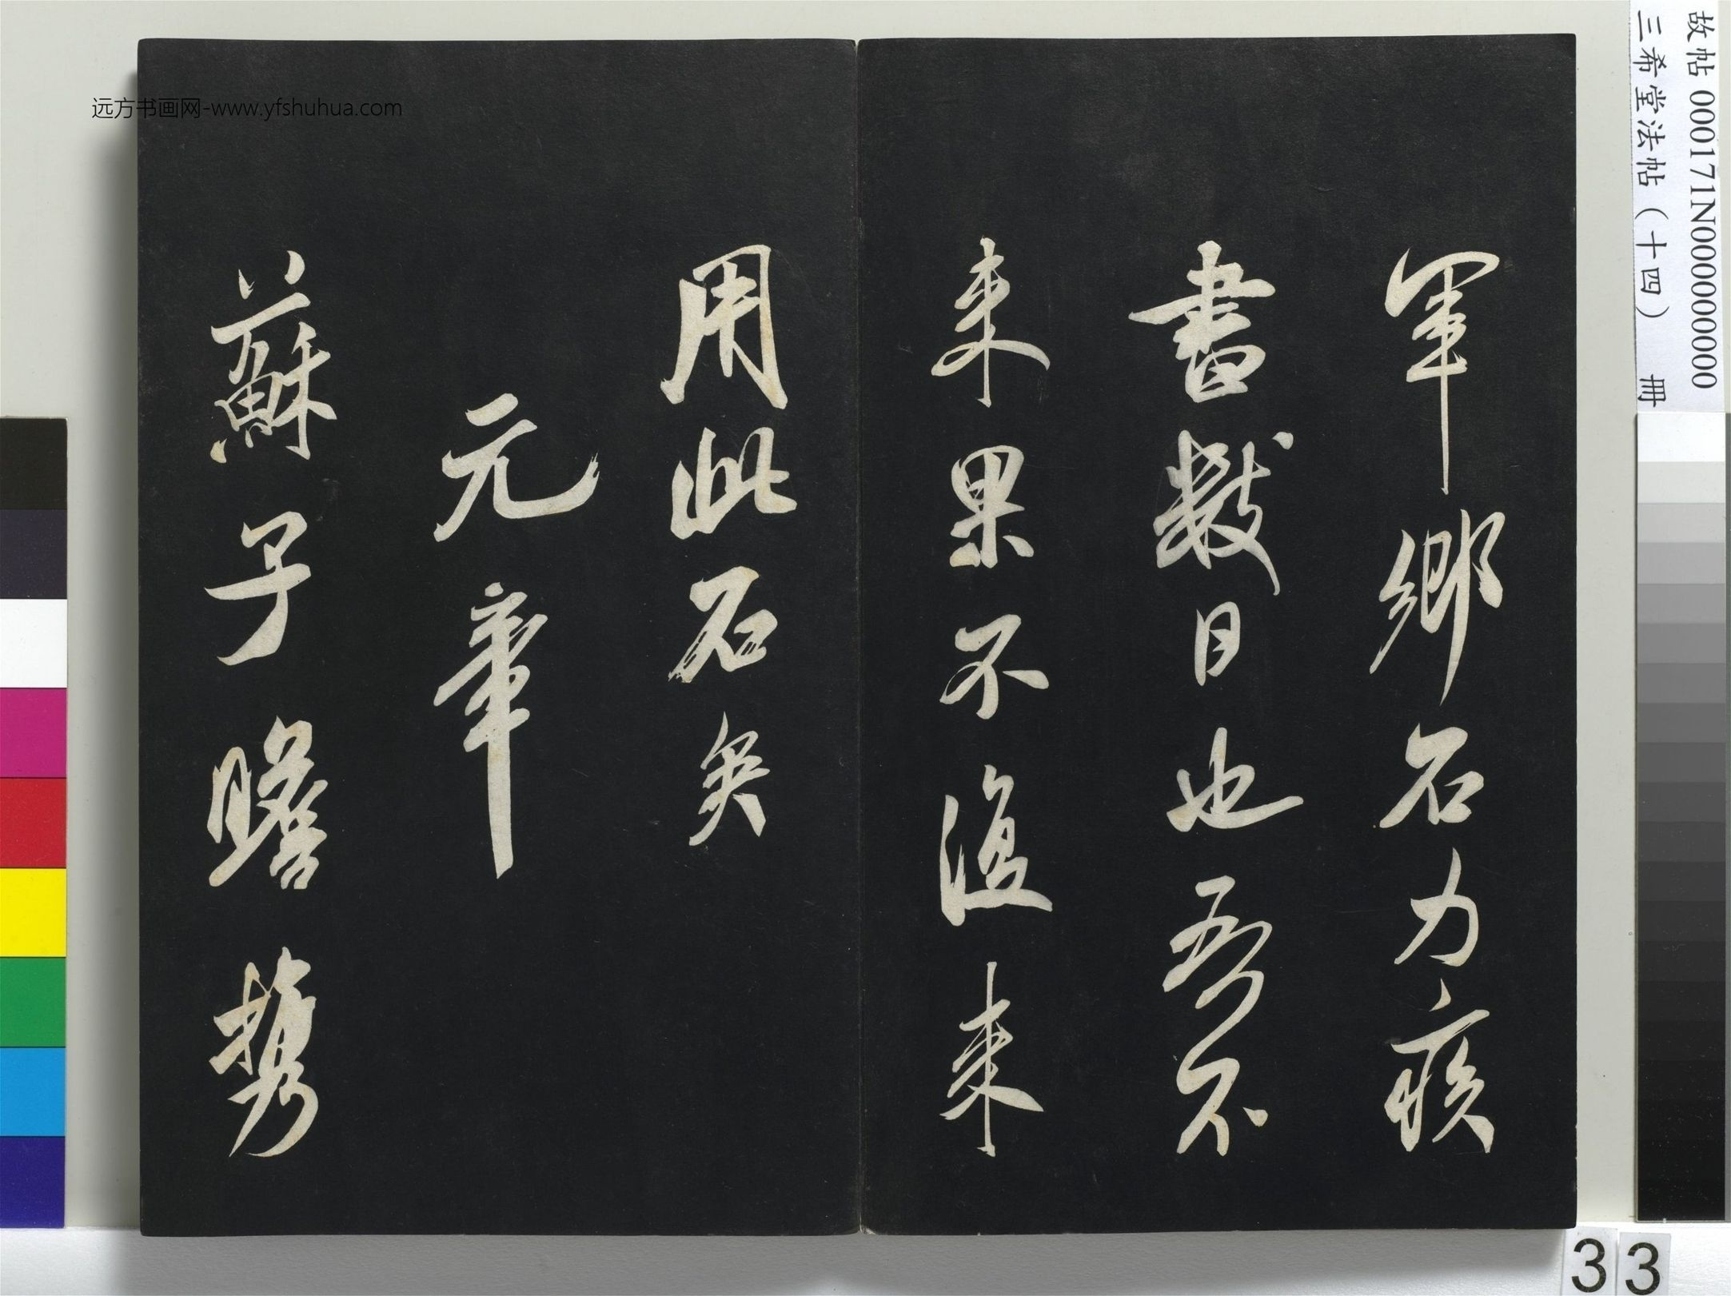 軍鄉石力疾
書數日也吾不
來果不復來
用此石矣
元章
蘇子瞻携
远方书画网-www.yfshuhua.com
故帖 000171N000000000
三希堂法帖(十四) 冊
33